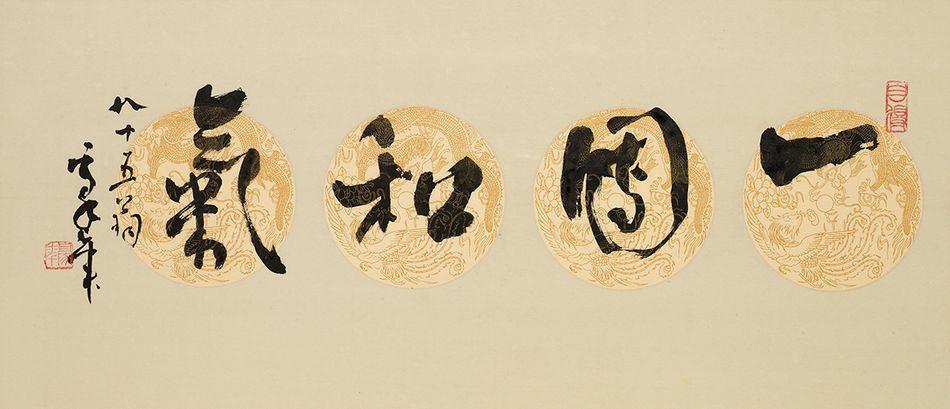 一團和氣
八十五翁